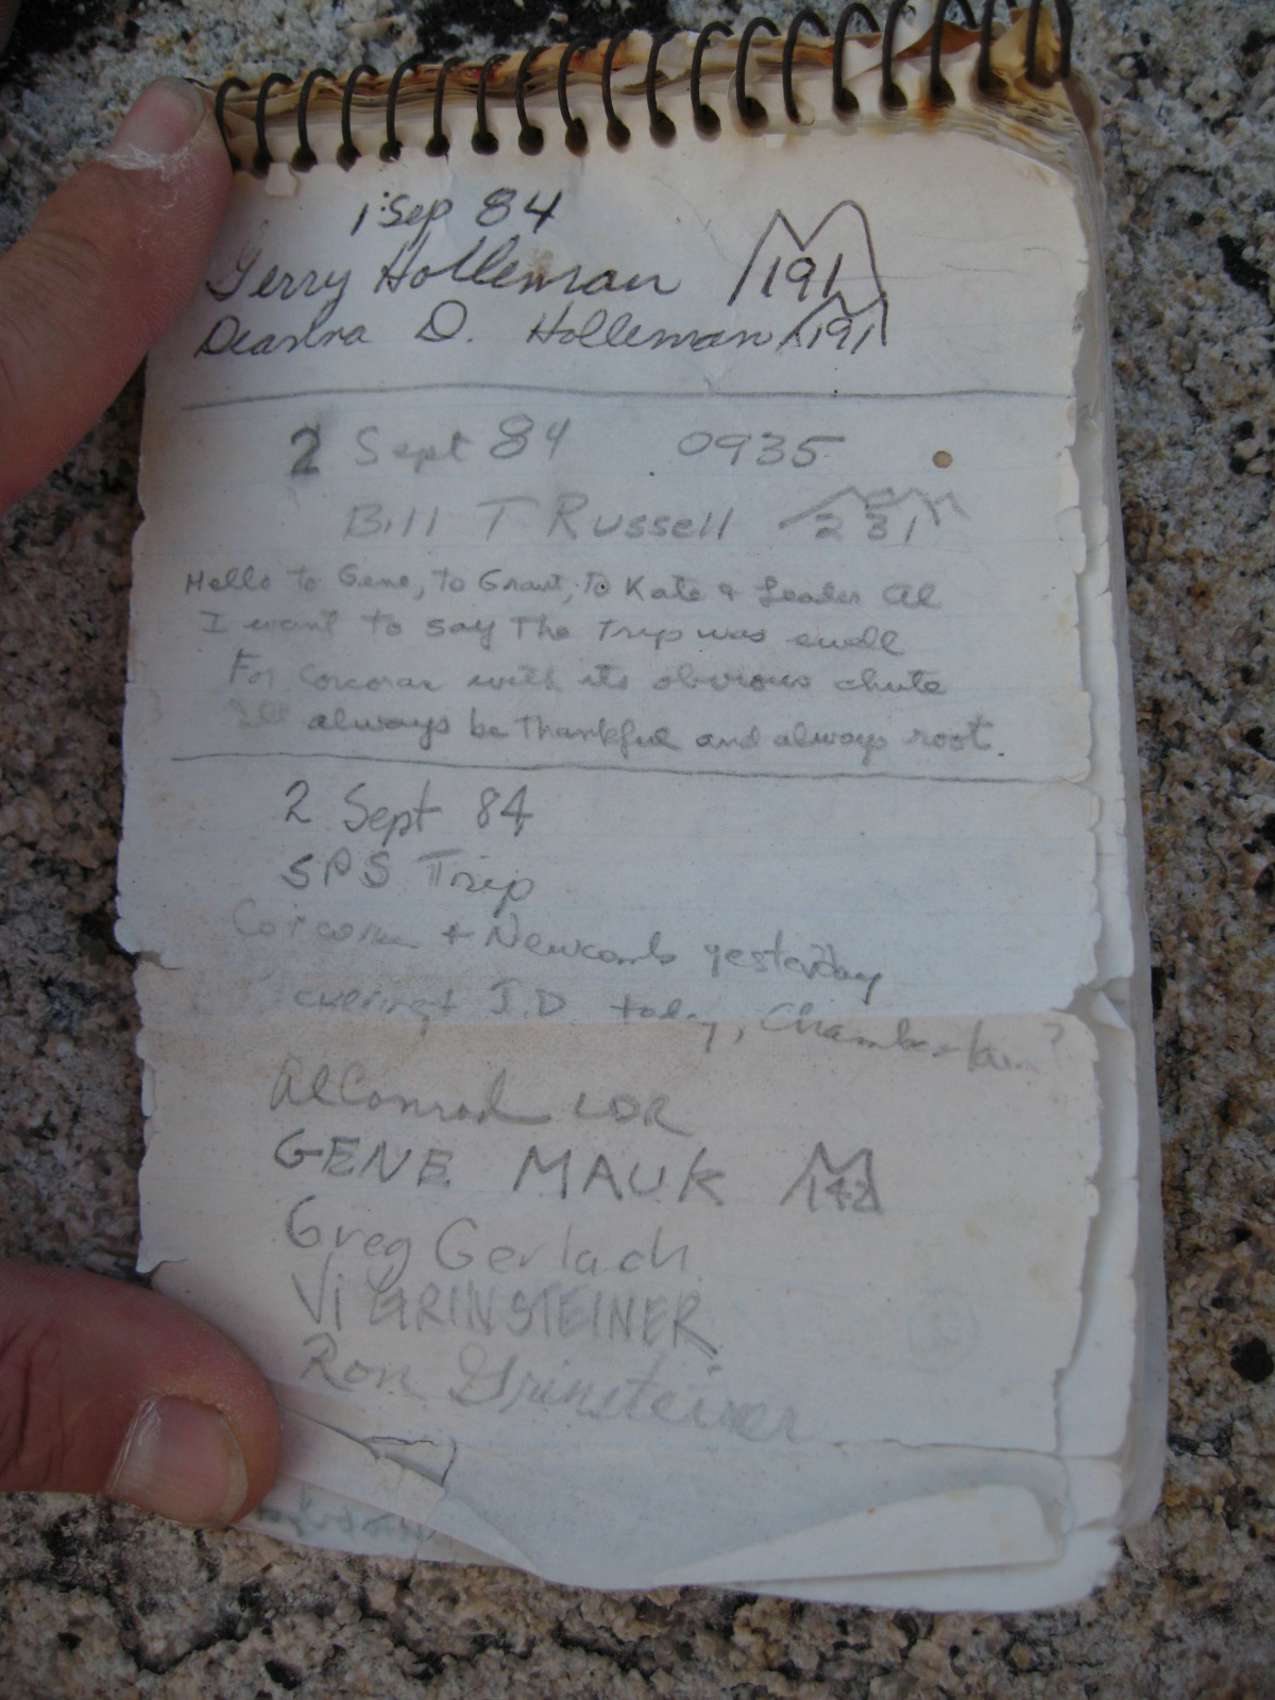 1 Sep 84
Gerry Holleman 191
Deanna D. Holleman 191
2 Sept 84 0935
Bill T Russell 231
Hello to Gene, to Grant, to Kate & Leader Al
I want to say The Trip was swell
For Corcoran with its obvious chute
I'll always be Thankful and always root.
2 Sept 84
SPS Trip
Corcoran + Newcomb yesterday
J.D. today, Chamberlain?
Al Conrad LDR
GENE MAUK 142
Greg Gerlach
Vi GRINSTEINER
Ron Grinsteiner